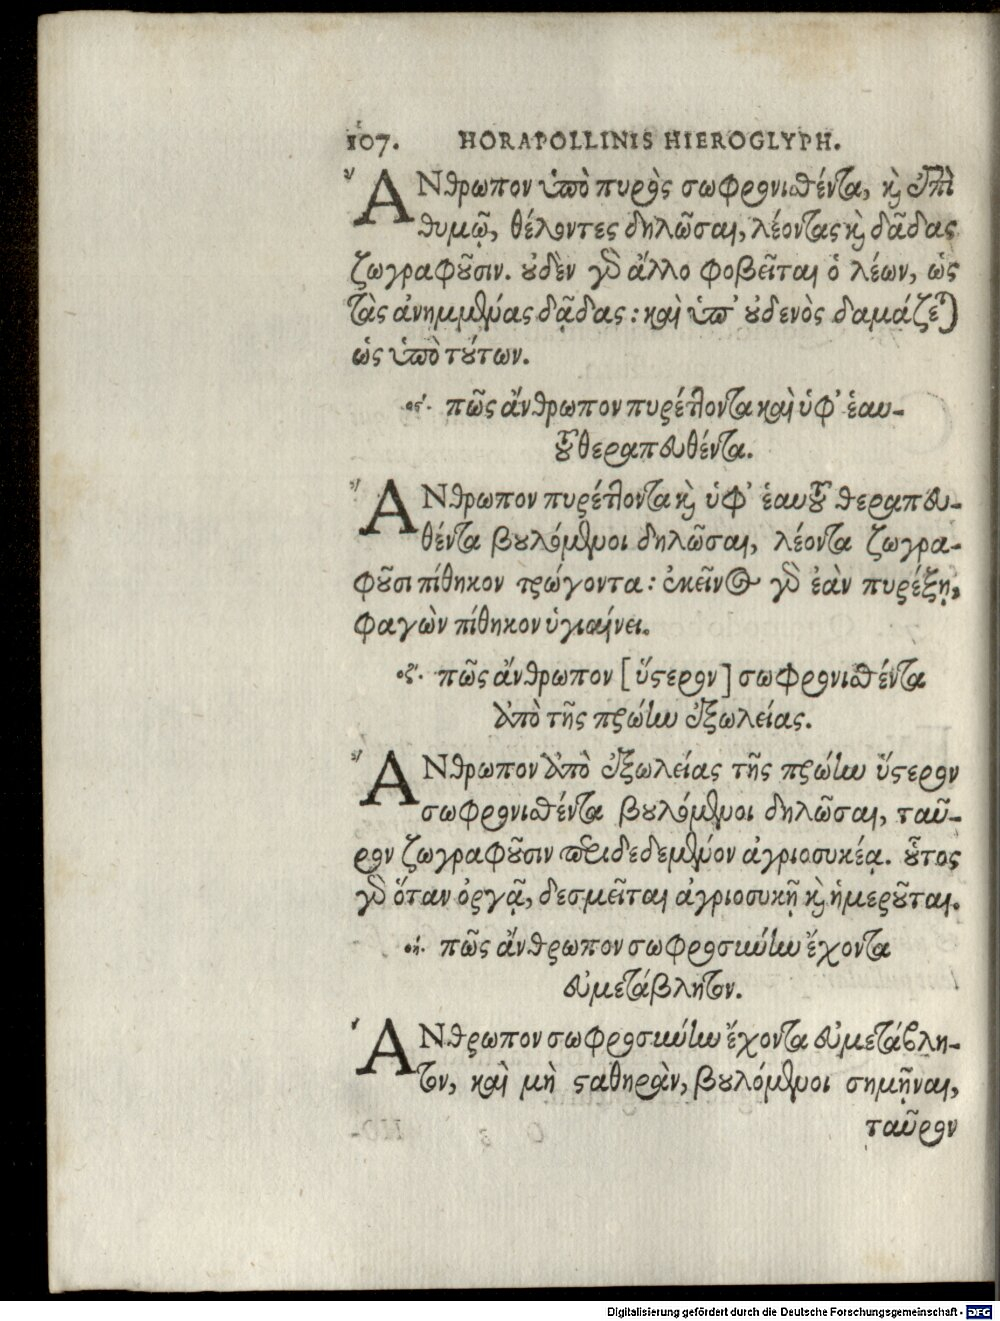 107. HORAPOLLINIS HIEROGLYPH.
ἌΝθρωπον ὑπὸ πυρὸς σωφρονισθέντα, καὶ ἐπὶ
θυμῷ, θέλοντες δηλῶσαι, λέοντας καὶ δᾶδας
ζωγραφοῦσιν. οὐδὲν γὰρ ἄλλο φοβεῖται ὁ λέων, ὡς
τὰς ἀνημμένας δᾷδας : καὶ ὑπ' οὐδενὸς δαμάζεται
ὡς ὑπὸ τούτων.
οϛ΄. πῶς ἄνθρωπον πυρέττοντα καὶ ὑφ' ἑαυ-
τοῦ θεραπευθέντα.
ἌΝθρωπον πυρέττοντα καὶ ὑφ' ἑαυτοῦ θεραπευ-
θέντα βουλόμενοι δηλῶσαι, λέοντα ζωγρα-
φοῦσι πίθηκον τρώγοντα : ἐκεῖνος γὰρ ἐὰν πυρέξῃ,
φαγὼν πίθηκον ὑγιαίνει.
οζ΄. πῶς ἄνθρωπον [ὕστερον] σωφρονισθέντα
ἀπὸ τῆς πρώην ἐξωλείας.
ἌΝθρωπον ἀπὸ ἐξωλείας τῆς πρώην ὕστερον
σωφρονισθέντα βουλόμενοι δηλῶσαι, ταῦ-
ρον ζωγραφοῦσιν περιδεδεμένον ἀγριοσυκέᾳ. οὗτος
γὰρ ὅταν ὀργᾷ, δεσμεῖται ἀγριοσυκῇ καὶ ἡμεροῦται.
οη΄. πῶς ἄνθρωπον σωφροσύνην ἔχοντα
εὐμετάβλητον.
ἌΝθρωπον σωφροσύνην ἔχοντα εὐμετάβλη-
τον, καὶ μὴ σταθηρὰν, βουλόμενοι σημῆναι,
ταῦρον
Digitalisierung gefördert durch die Deutsche Forschungsgemeinschaft - DFG